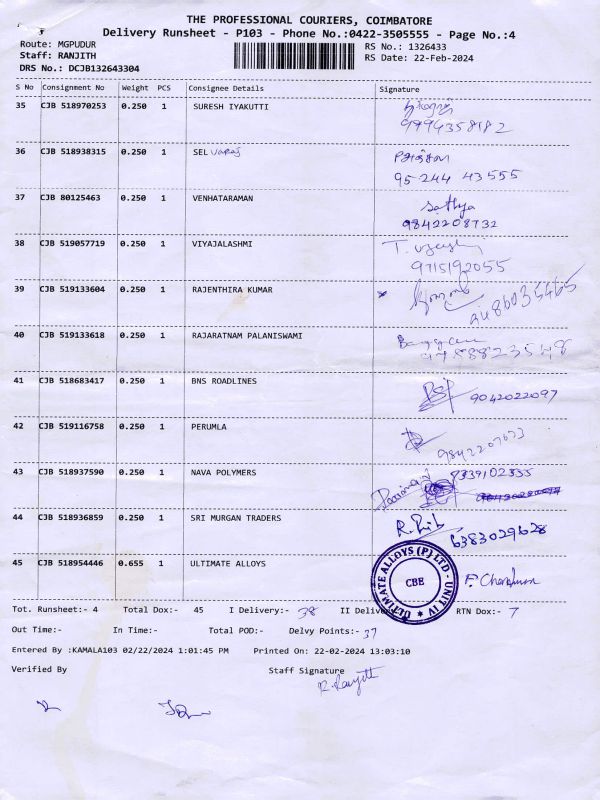 THE PROFESSIONAL COURIERS, COIMBATORE
Delivery Runsheet - P103 - Phone No.:0422-3505555 - Page No.:4
Route: MGPUDUR
Staff: RANJITH
DRS No.: DCJB132643304
RS No.: 1326433
RS Date: 22-Feb-2024
S No Consignment No Weight PCS Consignee Details Signature
35 CJB 518970253 0.250 1 SURESH IYAKUTTI
9994358182
36 CJB 518938315 0.250 1 SELvaraj
95 244 43555
37 CJB 80125463 0.250 1 VENHATARAMAN Sathya
9842208732
38 CJB 519057719 0.250 1 VIYAJALASHMI
9715192055
39 CJB 519133604 0.250 1 RAJENTHIRA KUMAR
40 CJB 519133618 0.250 1 RAJARATNAM PALANISWAMI
41 CJB 518683417 0.250 1 BNS ROADLINES 9042022097
42 CJB 519116758 0.250 1 PERUMLA
43 CJB 518937590 0.250 1 NAVA POLYMERS
44 CJB 518936859 0.250 1 SRI MURGAN TRADERS
6383029628
45 CJB 518954446 0.655 1 ULTIMATE ALLOYS
ULTIMATE ALLOYS (P) LTD - UNIT IV
CBE
Tot. Runsheet:- 4 Total Dox:- 45 I Delivery:- 38 II Delivery RTN Dox:- 7
Out Time:- In Time:- Total POD:- Delvy Points:- 37
Entered By :KAMALA103 02/22/2024 1:01:45 PM Printed On: 22-02-2024 13:03:10
Verified By Staff Signature